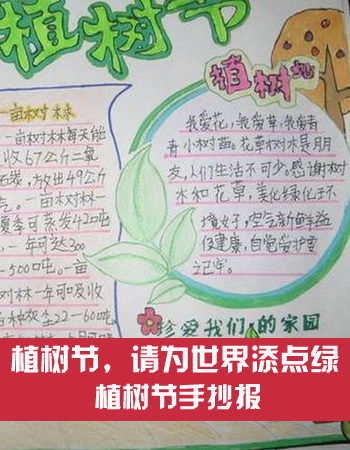 植树节
一亩树林
一亩树林每天能
收67公斤二氧
炭，放出49公斤
气。一亩树木一
夏季可蒸发420吨
，一年可达300
—500吨。一亩
树林一年可吸收
各种灰尘22—60吨
植树
我爱花，我爱草，我爱青
青小树苗。花草树木是朋
友，人们生活不可少。感谢树
木和花草，美化绿化环
境好，空气新鲜益
促健康，自觉爱护要
记牢。
珍爱我们的家园
植树节，请为世界添点绿
植树节手抄报